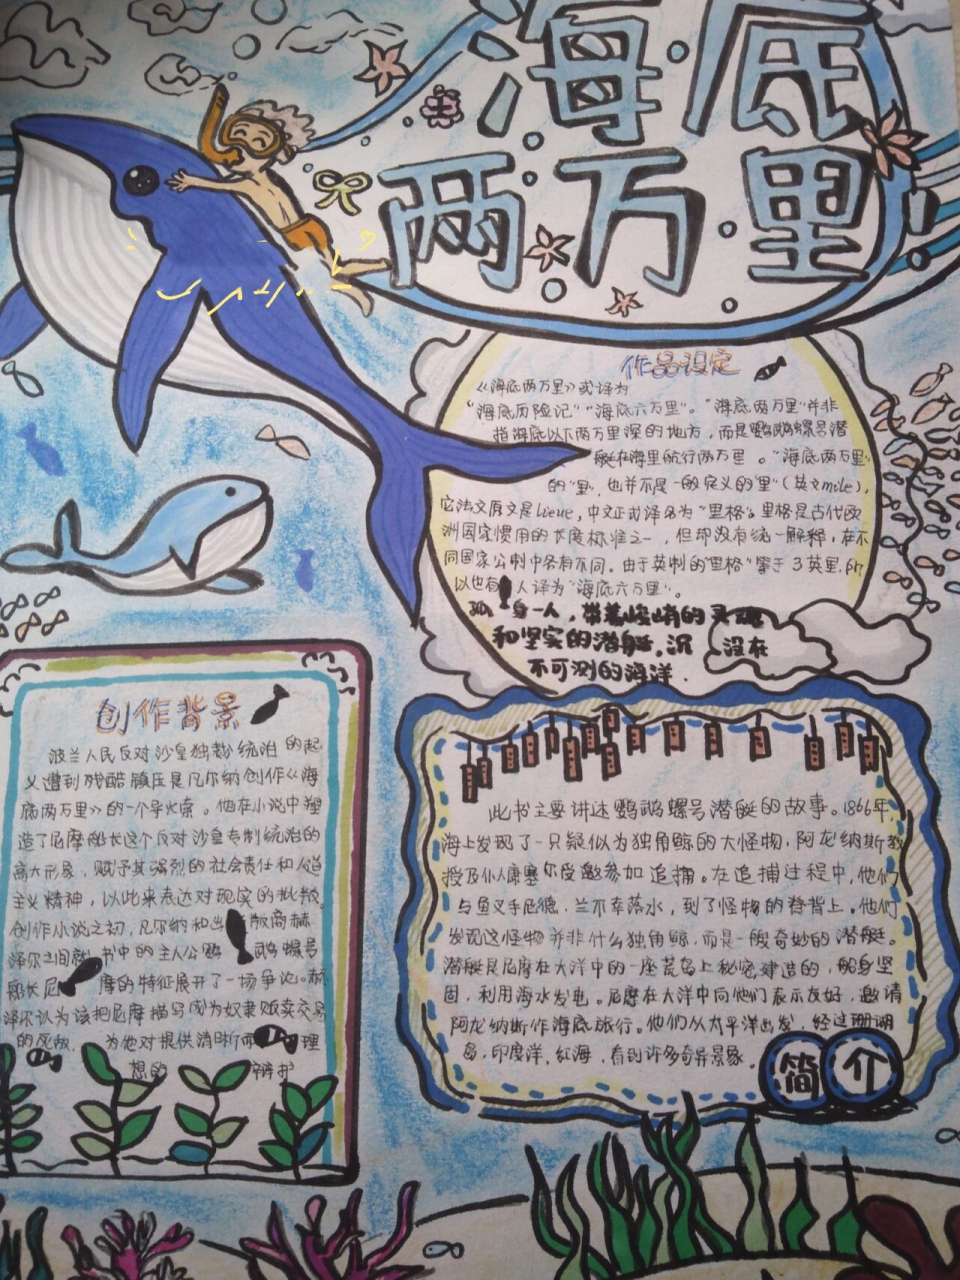 海底
两万里
作品设定
《海底两万里》或译为
“海底历险记”“海底六万里”。“海底两万里”并非
指海底以下两万里深的地方，而是鹦鹉螺号潜
艇在海里航行两万里。“海底两万里”
的“里”，也并不是一般定义的“里”（英文mile），
它法文原文是lieue，中文正式译名为“里格”。里格是古代欧
洲国家惯用的长度标准之一，但却没有统一解释，在不
同国家公制中各有不同。由于英制的“里格”等于3英里，所
以也有人译为“海底六万里”。
孤身一人，带着峻峭的灵魂
和坚实的潜艇，沉没在
不可测的海洋.
创作背景
波兰人民反对沙皇独裁统治的起
义遭到残酷镇压是凡尔纳创作《海
底两万里》的一个导火索。他在小说中塑
造了尼摩船长这个反对沙皇专制统治的
高大形象，赋予其强烈的社会责任和人道
主义精神，以此来表达对现实的批判。
创作小说之初，凡尔纳和出版商赫
泽尔之间就书中的主人公鹦鹉螺号
船长尼摩的特征展开了一场争论。赫
泽尔认为该把尼摩描写成为奴隶贩卖交易
的死敌，为他对提供清晰而理
想的辩护
此书主要讲述鹦鹉螺号潜艇的故事。1866年，
海上发现了一只疑似为独角鲸的大怪物，阿龙纳斯教
授及仆人康塞尔受邀参加追捕。在追捕过程中，他们
与鱼叉手尼德．兰不幸落水，到了怪物的脊背上。他们
发现这怪物并非什么独角鲸，而是一艘奇妙的潜艇。
潜艇是尼摩在大洋中的一座荒岛上秘密建造的，船身坚
固，利用海水发电。尼摩在大洋中向他们表示友好，邀请
阿龙纳斯作海底旅行。他们从太平洋出发，经过珊瑚
岛，印度洋，红海，看到许多奇异景象．
简介